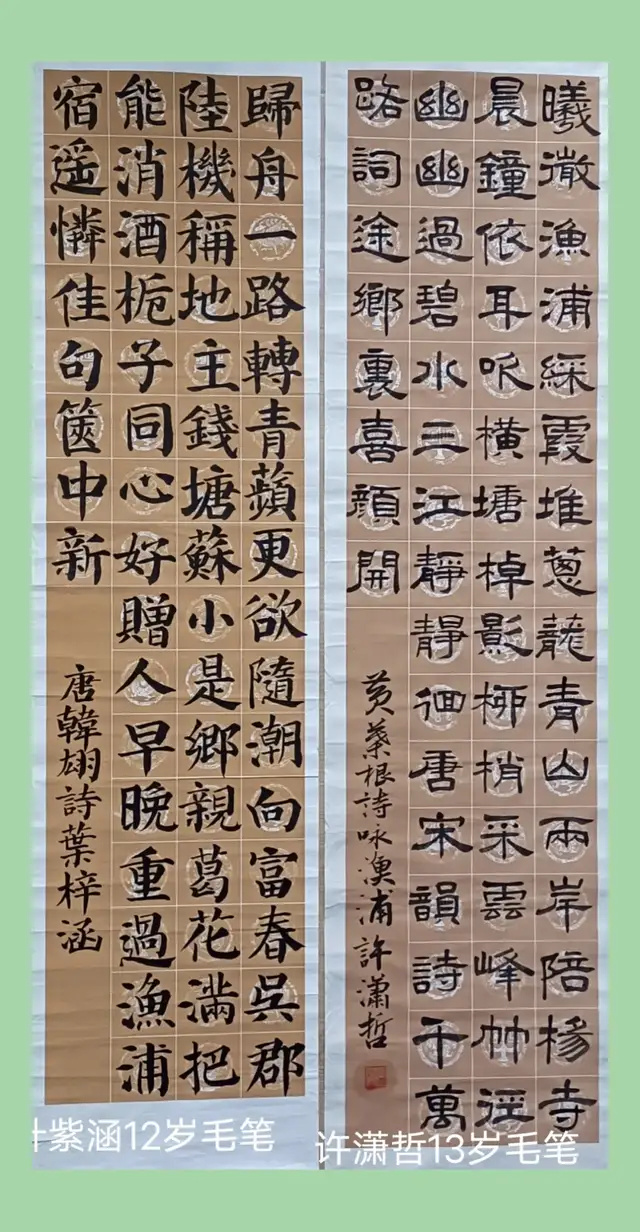 曦澂漁浦綵霞堆蔥蘢青山兩岸陪寺
晨鐘依耳吹橫塘棹影柳梢采雲峰竹徑
幽幽過碧水三江靜靜徊唐宋韻詩千萬
路詞途鄉裏喜顏開
黄葉根詩咏漁浦 許瀟哲
歸舟一路轉青蘋更欲隨潮向富春吳郡
陸機稱地主錢塘蘇小是鄉親葛花滿把
能消酒梔子同心好贈人早晚重過漁浦
宿遥憐佳句篋中新
唐韓翃詩葉梓涵
叶紫涵12岁毛笔
许潇哲13岁毛笔